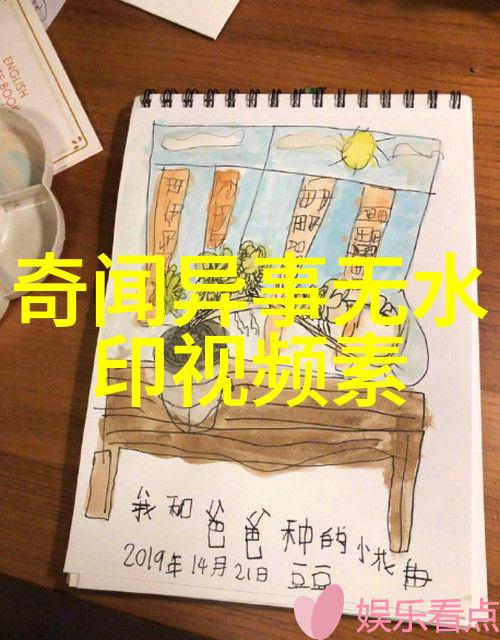 ENGLISH
E BOOK
奇闻异事无水
印视频素
我和爸爸种的小
2019年14月21日 豆豆
娱乐看点